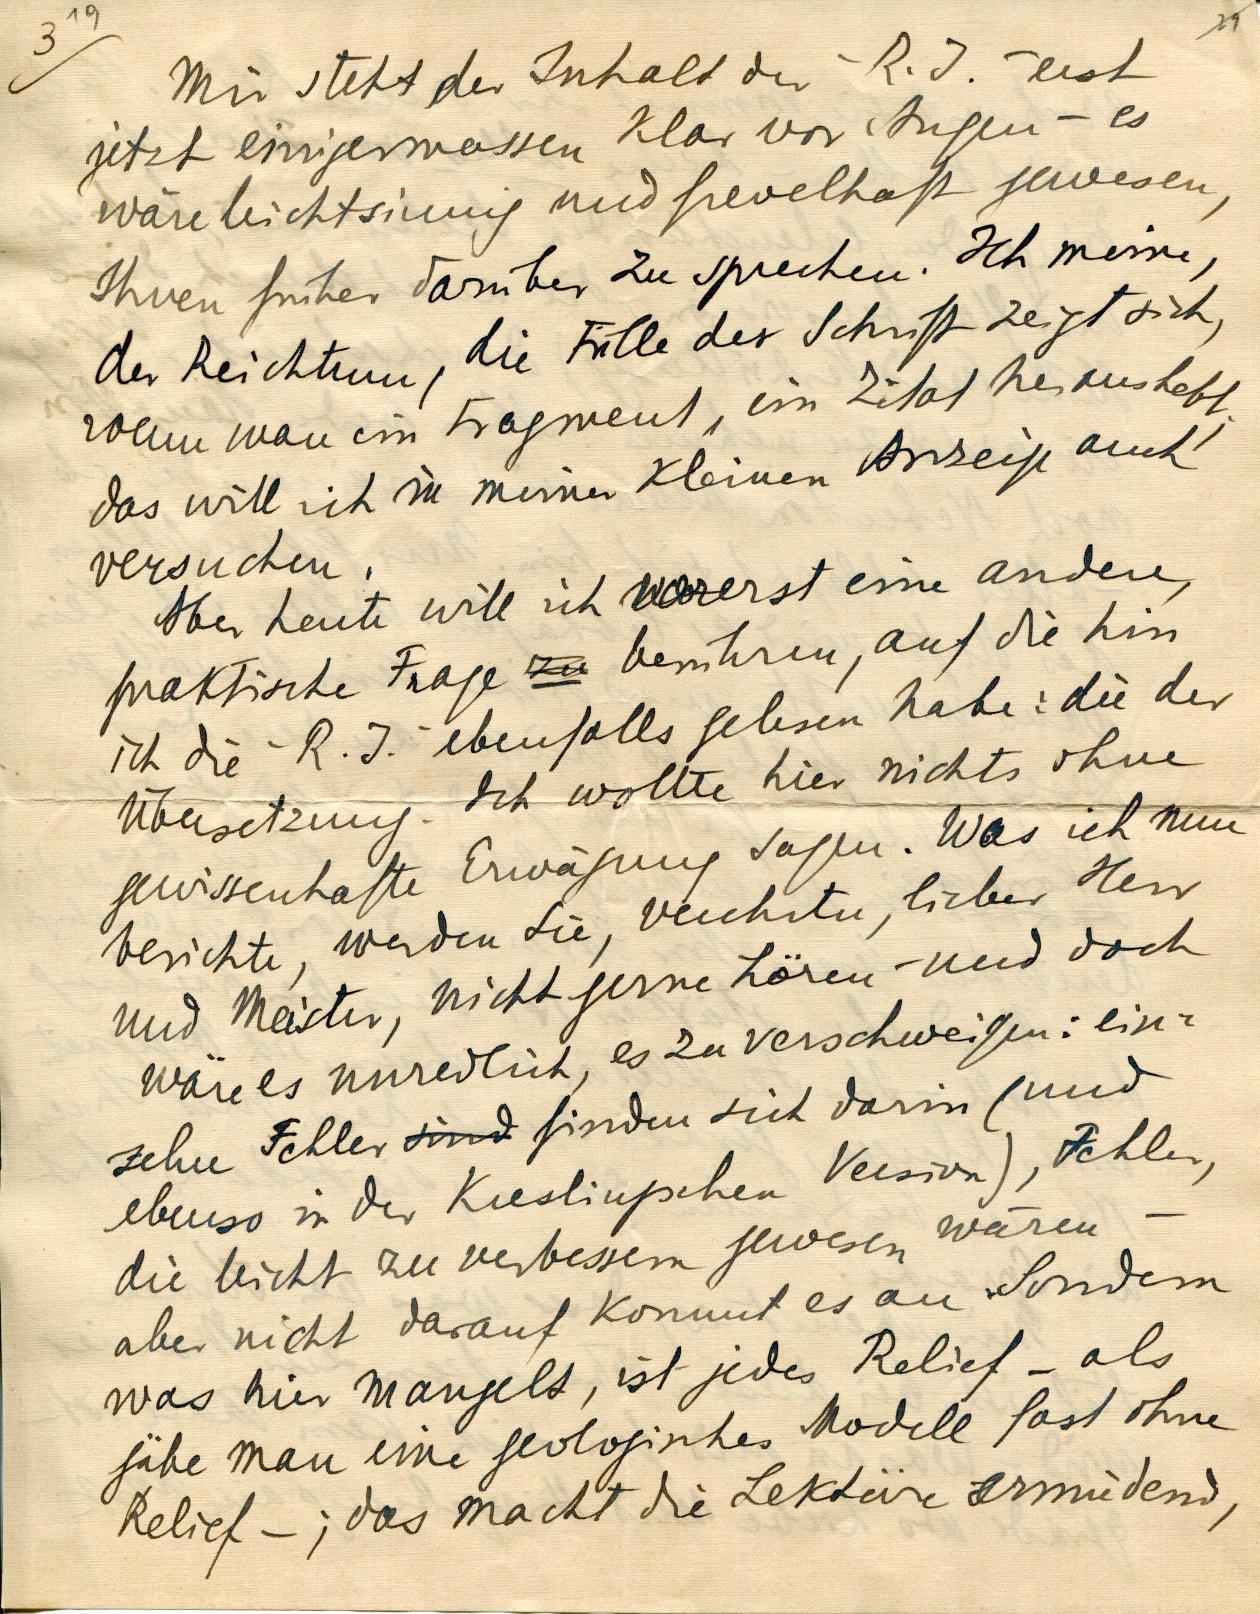 3 19
29
Mir steht der Inhalt der "R. I." erst
jetzt einigermassen klar vor Augen – es
wäre leichtsinnig und frevelhaft gewesen,
Ihnen früher darüber zu sprechen. Ich meine,
der Reichtum, die Fülle der Schrift zeigt sich,
wenn man ein Fragment, ein Zitat heraushebt,
das will ich in meiner kleinen Anzeige auch
versuchen.
Aber heute will ich vorerst eine andere,
praktische Frage zu berühren, auf die hin
ich die "R. I." ebenfalls gelesen habe: die der
Übersetzung. Ich wollte hier nichts ohne
gewissenhafte Erwägung sagen. Was ich nun
berichte, werden Sie, verehrter, lieber Herr
und Meister, nicht gerne hören – und doch
wäre es unredlich, es zu verschweigen: ein-
zelne Fehler sind finden sich darin (und
ebenso in der Version), Fehler,
die leicht zu verbessern gewesen wären –
aber nicht darauf kommt es an. Sondern
was hier mangelt, ist jedes Relief – als
gäbe man eine geologisches Modell fast ohne
Relief – ; das macht die Lektüre ermüdend,